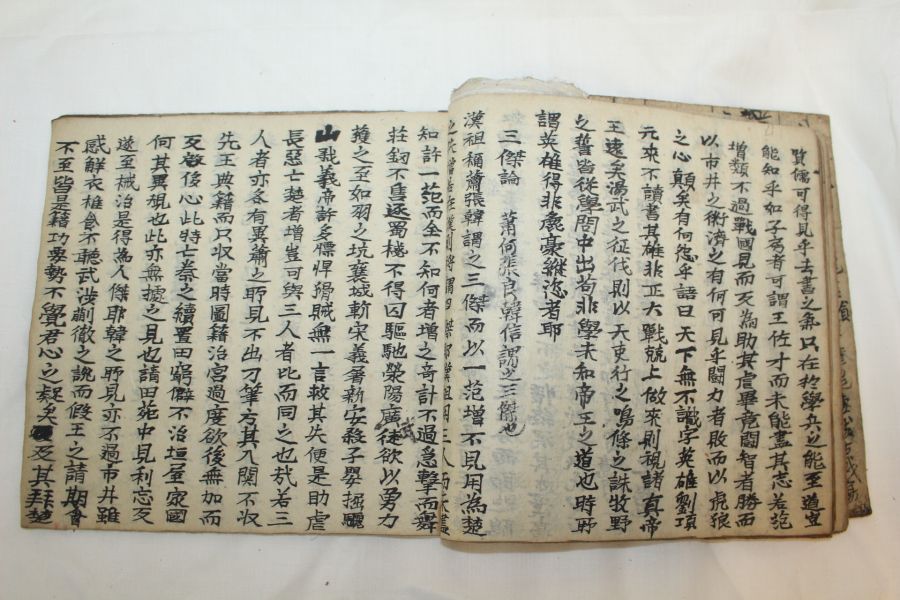 賢儒可得見乎去書之氣只在於學兵之能至道豈
能知乎如子房者可謂王佐才而未能盡其志若范
增類不過戰國見而反為助其虐畢竟鬪智者勝而
以市井之術濟之有何可見乎鬪力者敗而以虎狼
之心顛矣有何怨乎語曰天下無不識字英雄劉項
元來不讀書其雄非正大戰兢上做來則視諸真帝
王遠矣湯武之征伐則以天吏行之鳴條之誅牧野
之誓皆從學問中出苟非學未知帝王之道也時所
謂英雄得非麁豪縱恣者耶
三傑論 蕭何張良韓信謂之三傑也
漢祖稱蕭張韓謂之三傑而以一范增不見用為楚
知許一范而全不知何者增之奇計不過急擊而舞
莊鉤不售逐蜀棧不得囚驅馳滎陽廣武徒欲以勇力
獲之至如羽之坑襄城斬宋義屠新安殺子嬰掘驪
山弒義帝許多慓悍猾賊無一言救其失便是助虐
長惡亡楚者增豈可與三人者比而同之也哉若三
人者亦各有異蕭之所見不出刀筆方其入關不收
先王典籍而只收當時圖籍治宮過度欲後無加而
反啓後心此時亡秦之續置田窮僻不治垣屋家國
何其異視也此亦無據之見也請田苑中見利忘反
遂至械治是得為人傑耶韓之所見亦不過市井雖
感鮮衣推食不聽武涉蒯徹之說而假王之請期會
不至皆是籍功要勢不覺君心之疑矣及其拜楚